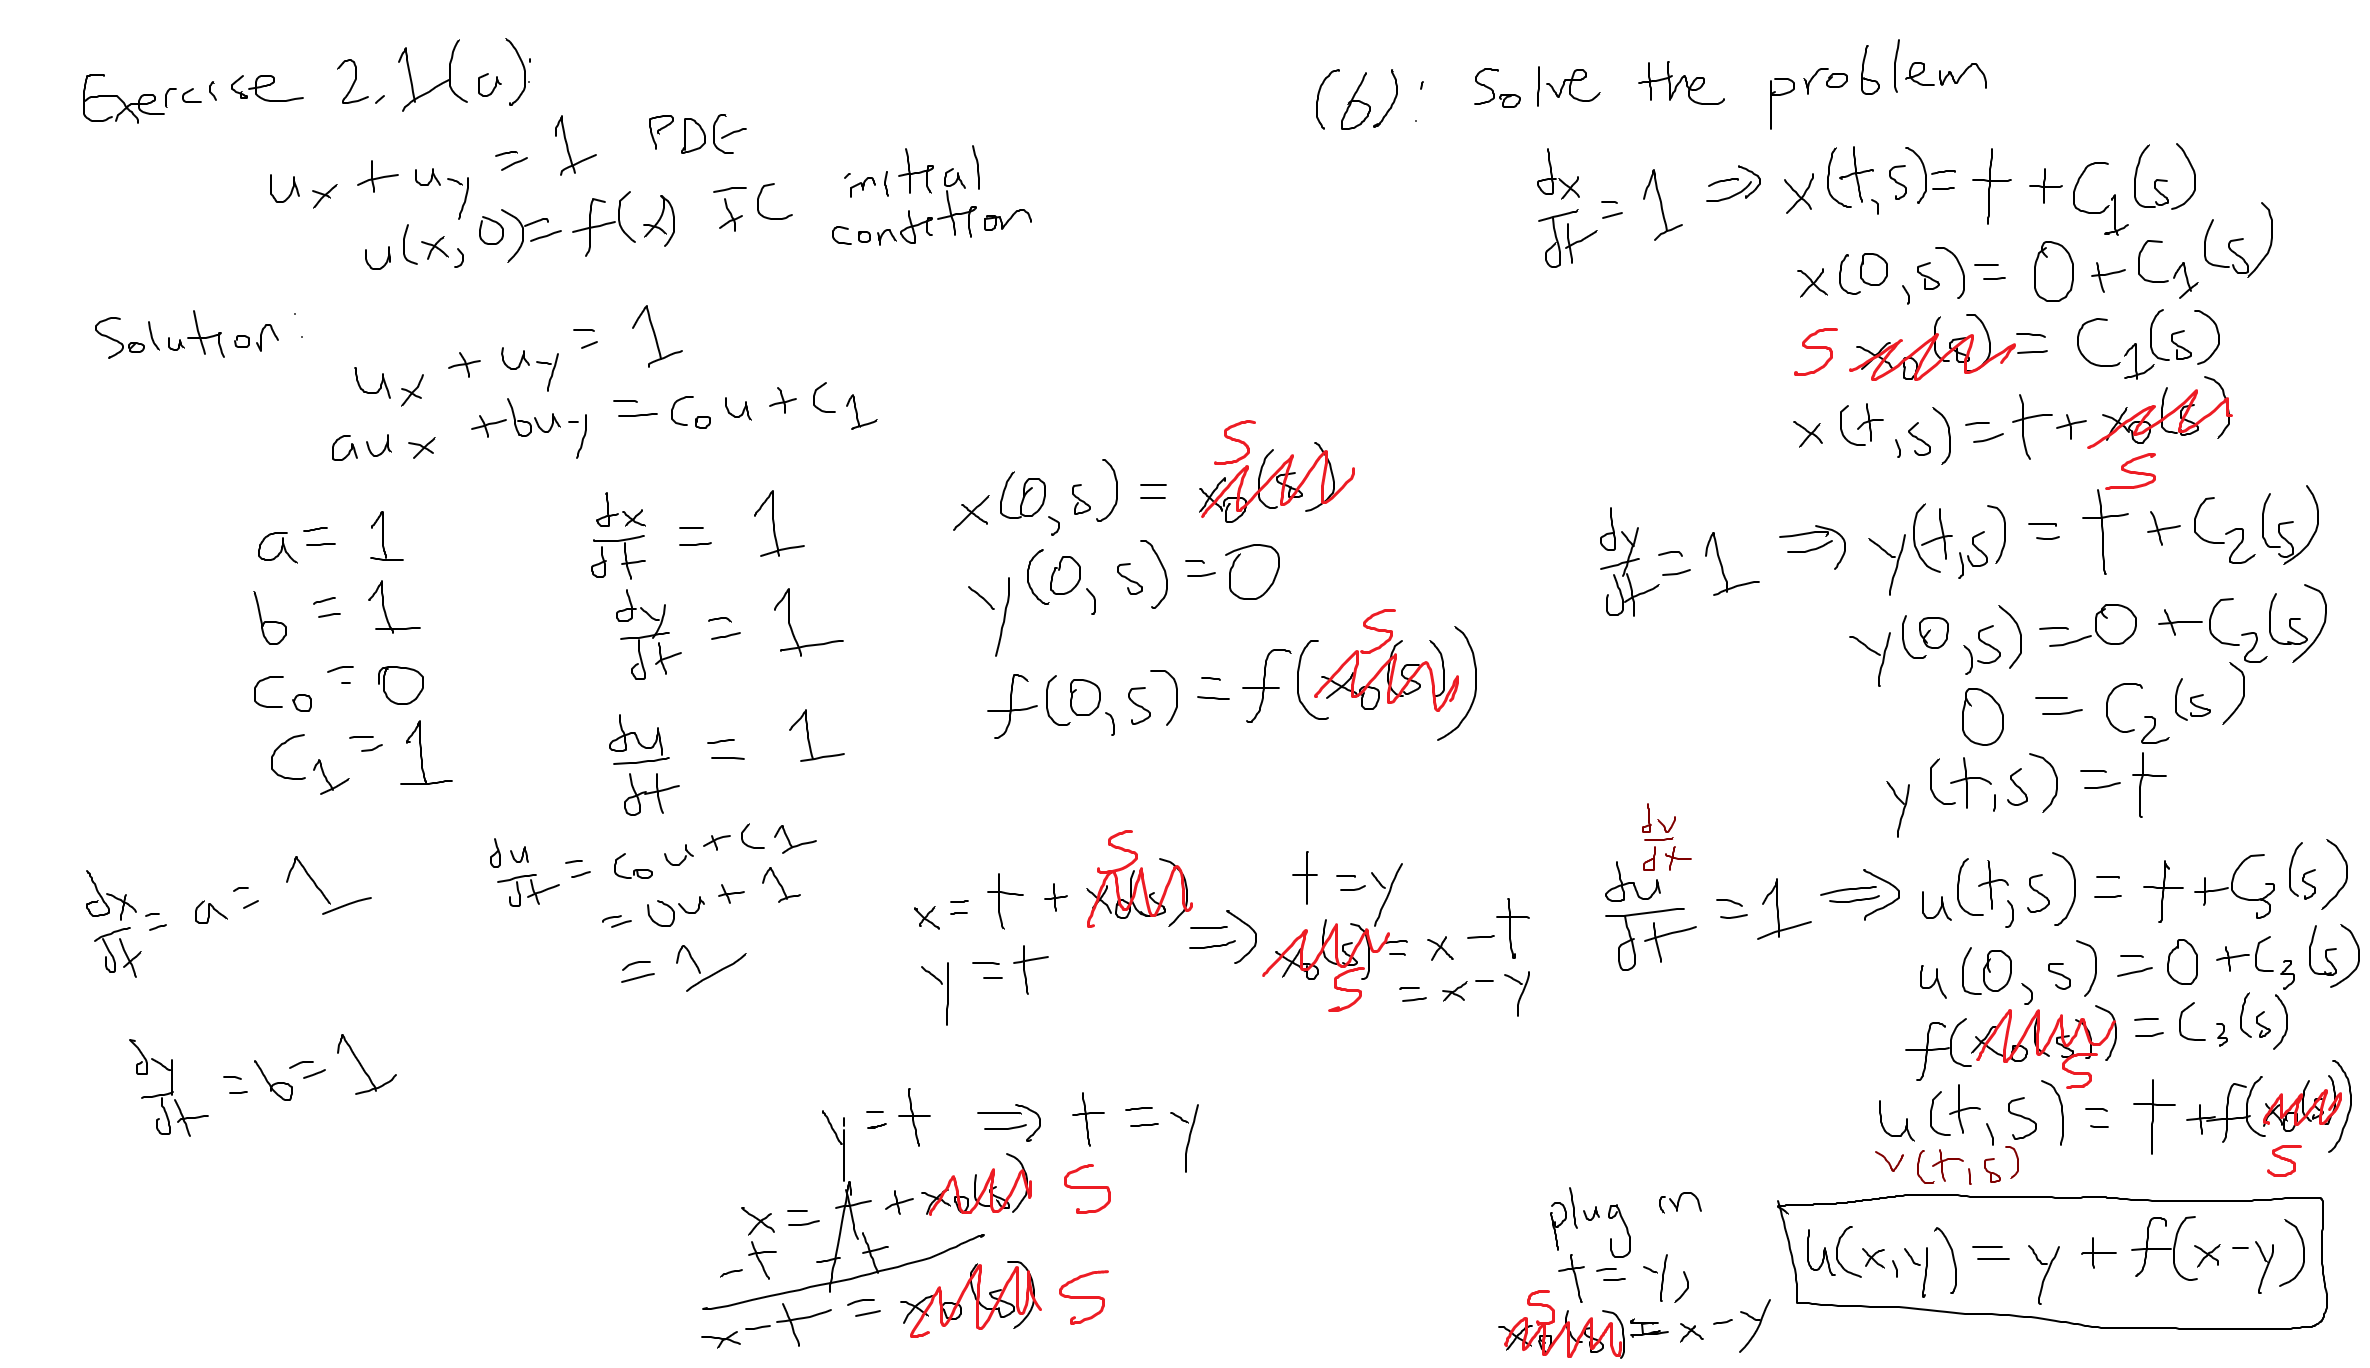 Exercise 2.1(a):
u_x + u_y = 1 PDE
u(x,0) = f(x) IC initial condition
Solution:
u_x + u_y = 1
au_x + bu_y = c_0 u + c_1
a = 1
b = 1
c_0 = 0
c_1 = 1
dx/dt = 1
dy/dt = 1
du/dt = 1
dx/dt = a = 1
dy/dt = b = 1
du/dt = c_0 u + c_1
= 0u + 1
= 1
x(0,s) = x_0(s) s
y(0,s) = 0
f(0,s) = f(x_0(s)) s
x = t + x_0(s) s
y = t
⇒ t = y
x_0(s) s = x - t
= x - y
y = t ⇒ t = y
x = t + x_0(s) s
-t -t
x - t = x_0(s) s
(b): Solve the problem
dx/dt = 1 ⇒ x(t,s) = t + C_1(s)
x(0,s) = 0 + C_1(s)
s x_0(s) = C_1(s)
x(t,s) = t + x_0(s) s
dy/dt = 1 ⇒ y(t,s) = t + C_2(s)
y(0,s) = 0 + C_2(s)
0 = C_2(s)
y(t,s) = t
dv/dt
du/dt = 1 ⇒ u(t,s) = t + C_3(s)
u(0,s) = 0 + C_3(s)
f(x_0(s)) s = C_3(s)
u(t,s) = t + f(x_0(s)) s
v(t,s)
plug in
t = y,
s x_0(s) = x - y
u(x,y) = y + f(x-y)